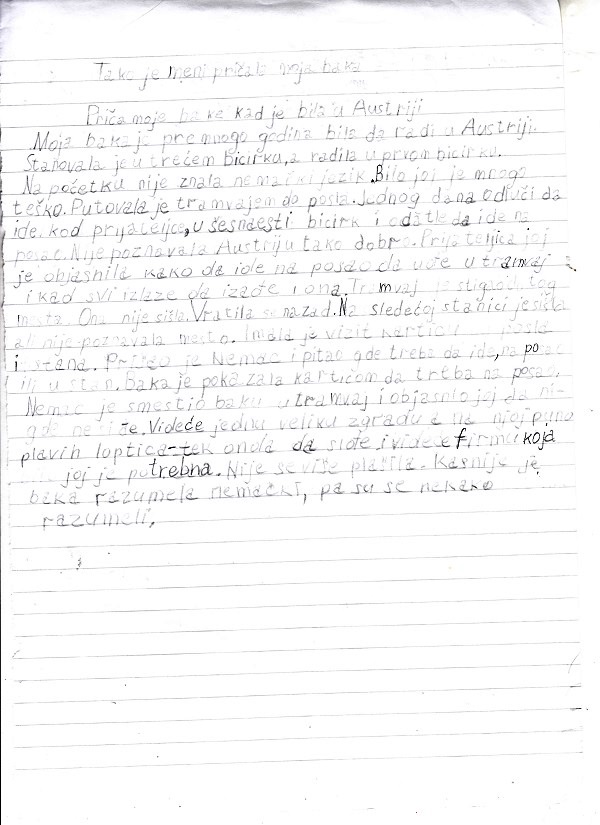 Tako je meni pričala moja baka
Priča moje bake kad je bila u Austriji
Moja baka je pre mnogo godina bila da radi u Austriji.
Stanovala je u trećem bicirku, a radila u prvom bicirku.
Na početku nije znala nemački jezik. Bilo joj je mnogo
teško. Putovala je tramvajem do posla. Jednog dana odluči da
ide kod prijateljce, u šesnaesti bicirk i odatle da ide na
posao. Nije poznavala Austriju tako dobro. Prijateljica joj
je objasnila kako da ide na posao da uđe u tramvaj
i kad svi izlaze da izađe i ona. Tramvaj je stigao do tog
mesta. Ona nije sišla. Vratila se nazad. Na sledećoj stanici je sišla
ali nije poznavala mesto. Imala je vizit karticu posla
i stana. Prišao je Nemac i pitao gde treba da ide, na posao
ili u stan. Baka je pokazala karticom da treba na posao.
Nemac je smestio baku u tramvaj i objasnio joj da ni-
gde ne siđe. Videće jednu veliku zgradu a na njoj puno
plavih loptica-tek onda da siđe i videće firmu koja
joj je potrebna. Nije se više plašila. Kasnije je
baka razumela nemački, pa su se nekako
razumeli.